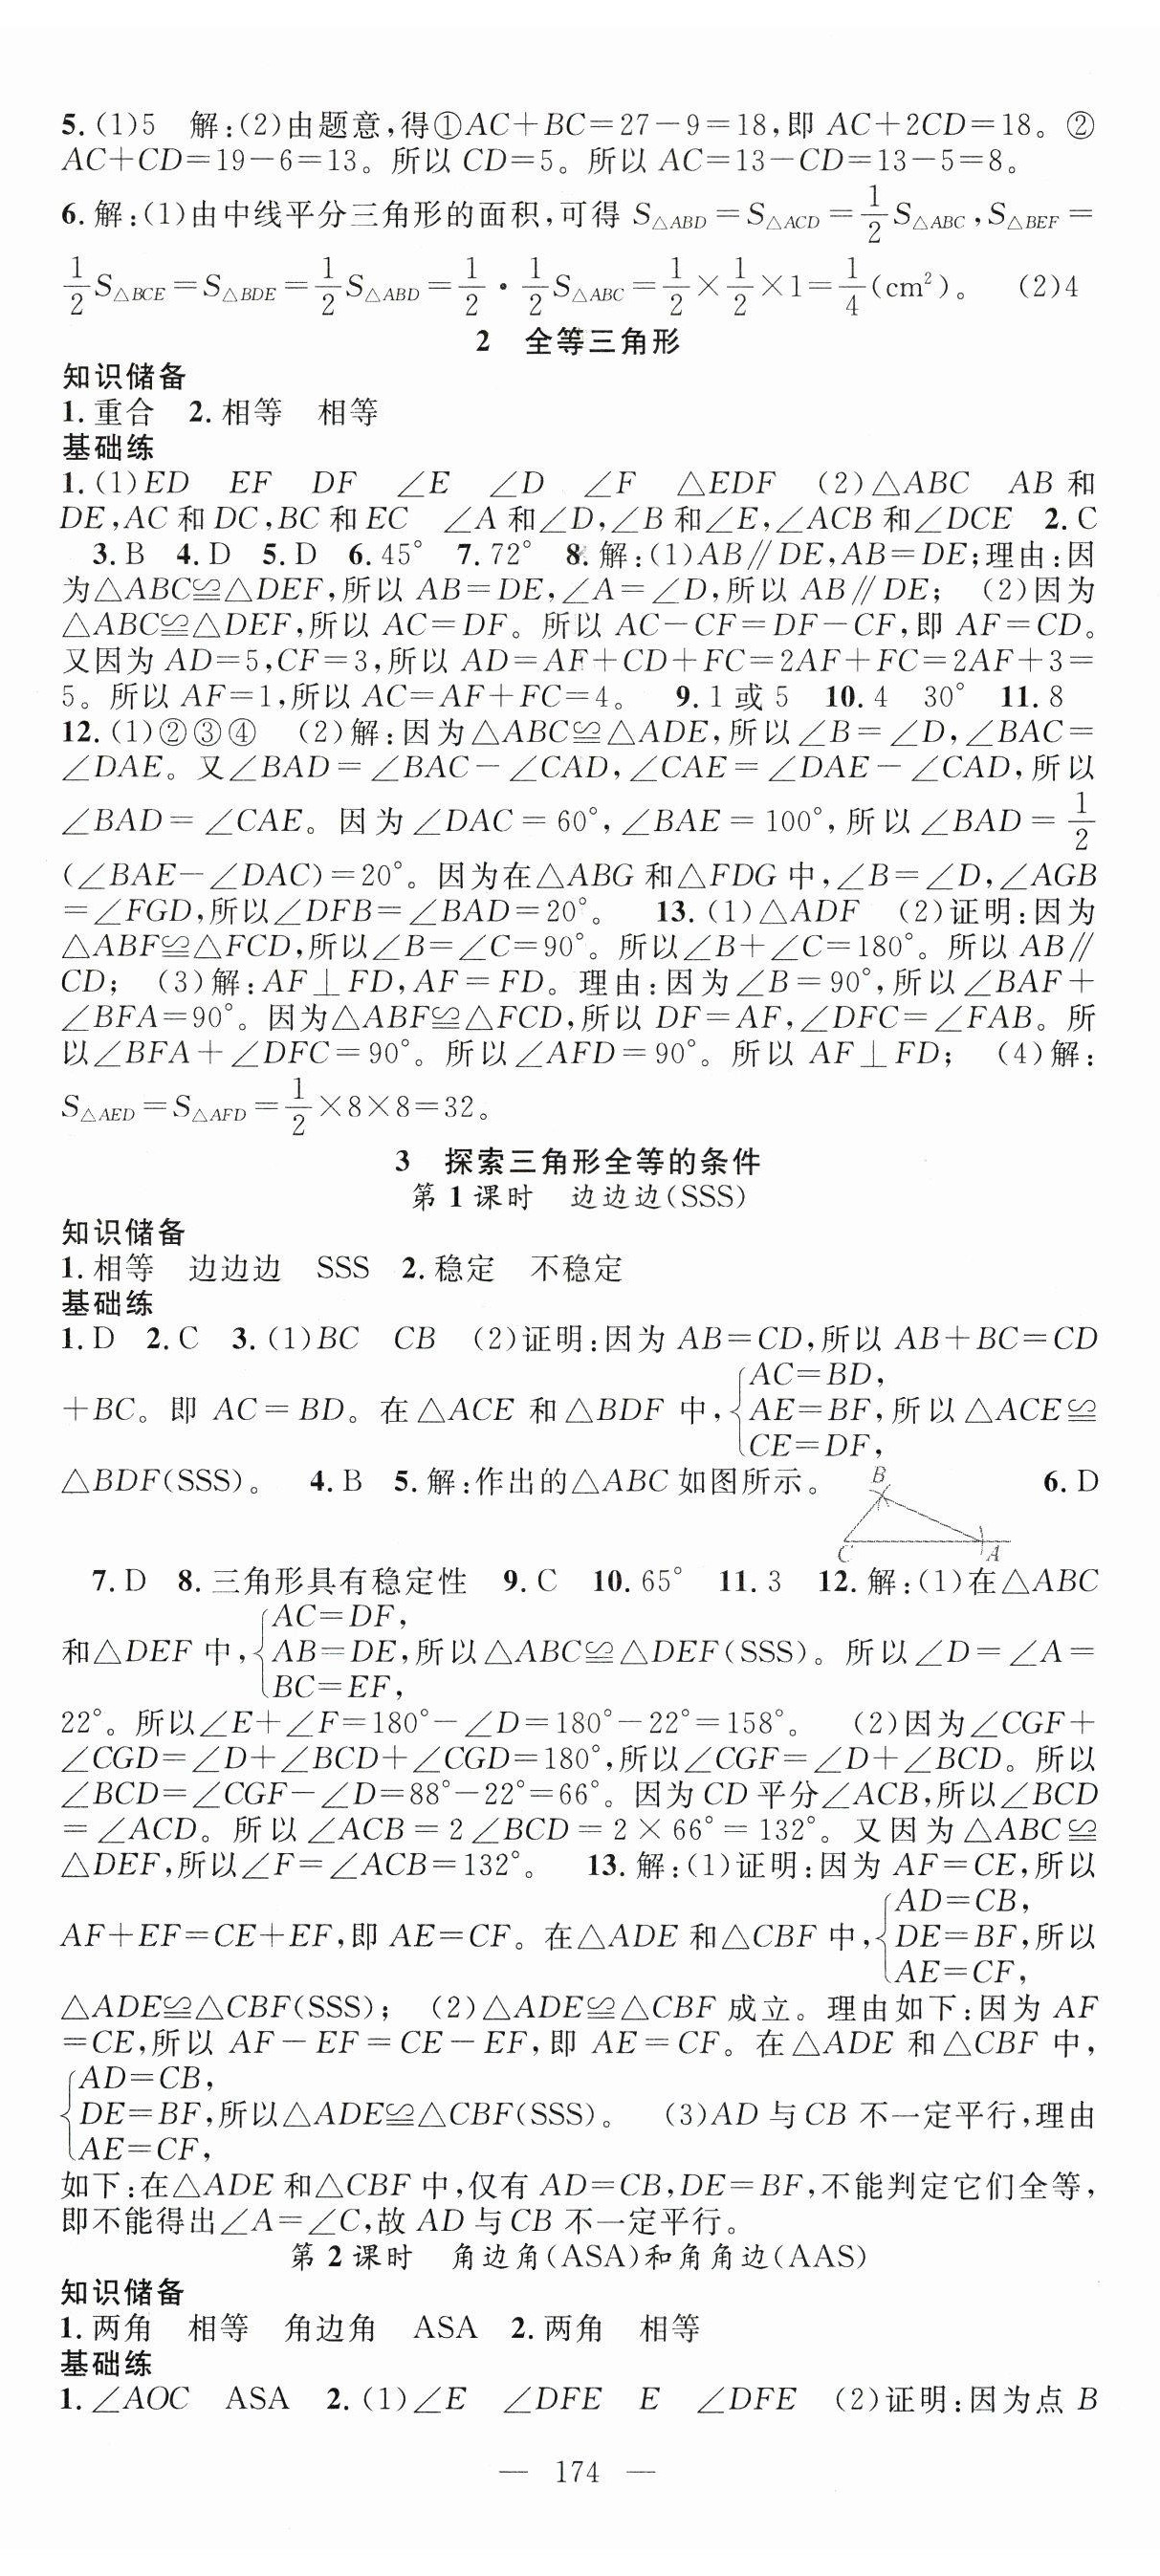 5. (1)5 解:(2)由题意,得①AC+BC=27-9=18,即 AC+2CD=18。②
AC+CD=19-6=13。所以 CD=5。所以 AC=13-CD=13-5=8。
6. 解:(1)由中线平分三角形的面积,可得 S△ABD=S△ACD=1/2 S△ABC,S△BEF=
1/2 S△BCE=S△BDE=1/2 S△ABD=1/2·1/2 S△ABC=1/2×1/2×1=1/4(cm²)。 (2)4
2 全等三角形
知识储备
1. 重合 2. 相等 相等
基础练
1. (1)ED EF DF ∠E ∠D ∠F △EDF (2)△ABC AB 和
DE,AC 和 DC,BC 和 EC ∠A 和∠D,∠B 和∠E,∠ACB 和∠DCE 2. C
3. B 4. D 5. D 6. 45° 7. 72° 8. 解:(1)AB∥DE,AB=DE;理由:因
为△ABC≌△DEF,所以 AB=DE,∠A=∠D,所以 AB∥DE; (2)因为
△ABC≌△DEF,所以 AC=DF。所以 AC-CF=DF-CF,即 AF=CD。
又因为 AD=5,CF=3,所以 AD=AF+CD+FC=2AF+FC=2AF+3=
5。所以 AF=1,所以 AC=AF+FC=4。 9. 1 或 5 10. 4 30° 11. 8
12. (1)②③④ (2)解:因为△ABC≌△ADE,所以∠B=∠D,∠BAC=
∠DAE。又∠BAD=∠BAC-∠CAD,∠CAE=∠DAE-∠CAD,所以
∠BAD=∠CAE。因为∠DAC=60°,∠BAE=100°,所以∠BAD=1/2
(∠BAE-∠DAC)=20°。因为在△ABG 和△FDG 中,∠B=∠D,∠AGB
=∠FGD,所以∠DFB=∠BAD=20°。 13. (1)△ADF (2)证明:因为
△ABF≌△FCD,所以∠B=∠C=90°。所以∠B+∠C=180°。所以 AB∥
CD; (3)解:AF⊥FD,AF=FD。理由:因为∠B=90°,所以∠BAF+
∠BFA=90°。因为△ABF≌△FCD,所以 DF=AF,∠DFC=∠FAB。所
以∠BFA+∠DFC=90°。所以∠AFD=90°。所以 AF⊥FD; (4)解:
S△AED=S△AFD=1/2×8×8=32。
3 探索三角形全等的条件
第 1 课时 边边边(SSS)
知识储备
1. 相等 边边边 SSS 2. 稳定 不稳定
基础练
1. D 2. C 3. (1)BC CB (2)证明:因为 AB=CD,所以 AB+BC=CD
AC=BD,
+BC。即 AC=BD。在△ACE 和△BDF 中,{AE=BF,所以△ACE≌
CE=DF,
△BDF(SSS)。 4. B 5. 解:作出的△ABC 如图所示。 B 6. D
C A
7. D 8. 三角形具有稳定性 9. C 10. 65° 11. 3 12. 解:(1)在△ABC
AC=DF,
和△DEF 中,{AB=DE,所以△ABC≌△DEF(SSS)。所以∠D=∠A=
BC=EF,
22°。所以∠E+∠F=180°-∠D=180°-22°=158°。 (2)因为∠CGF+
∠CGD=∠D+∠BCD+∠CGD=180°,所以∠CGF=∠D+∠BCD。所以
∠BCD=∠CGF-∠D=88°-22°=66°。因为 CD 平分∠ACB,所以∠BCD
=∠ACD。所以∠ACB=2∠BCD=2×66°=132°。又因为△ABC≌
△DEF,所以∠F=∠ACB=132°。 13. 解:(1)证明:因为 AF=CE,所以
AD=CB,
AF+EF=CE+EF,即 AE=CF。在△ADE 和△CBF 中,{DE=BF,所以
AE=CF,
△ADE≌△CBF(SSS); (2)△ADE≌△CBF 成立。理由如下:因为 AF
=CE,所以 AF-EF=CE-EF,即 AE=CF。在△ADE 和△CBF 中,
AD=CB,
{DE=BF,所以△ADE≌△CBF(SSS)。 (3)AD 与 CB 不一定平行,理由
AE=CF,
如下:在△ADE 和△CBF 中,仅有 AD=CB,DE=BF,不能判定它们全等,
即不能得出∠A=∠C,故 AD 与 CB 不一定平行。
第 2 课时 角边角(ASA)和角角边(AAS)
知识储备
1. 两角 相等 角边角 ASA 2. 两角 相等
基础练
1. ∠AOC ASA 2. (1)∠E ∠DFE E ∠DFE (2)证明:因为点 B
— 174 —